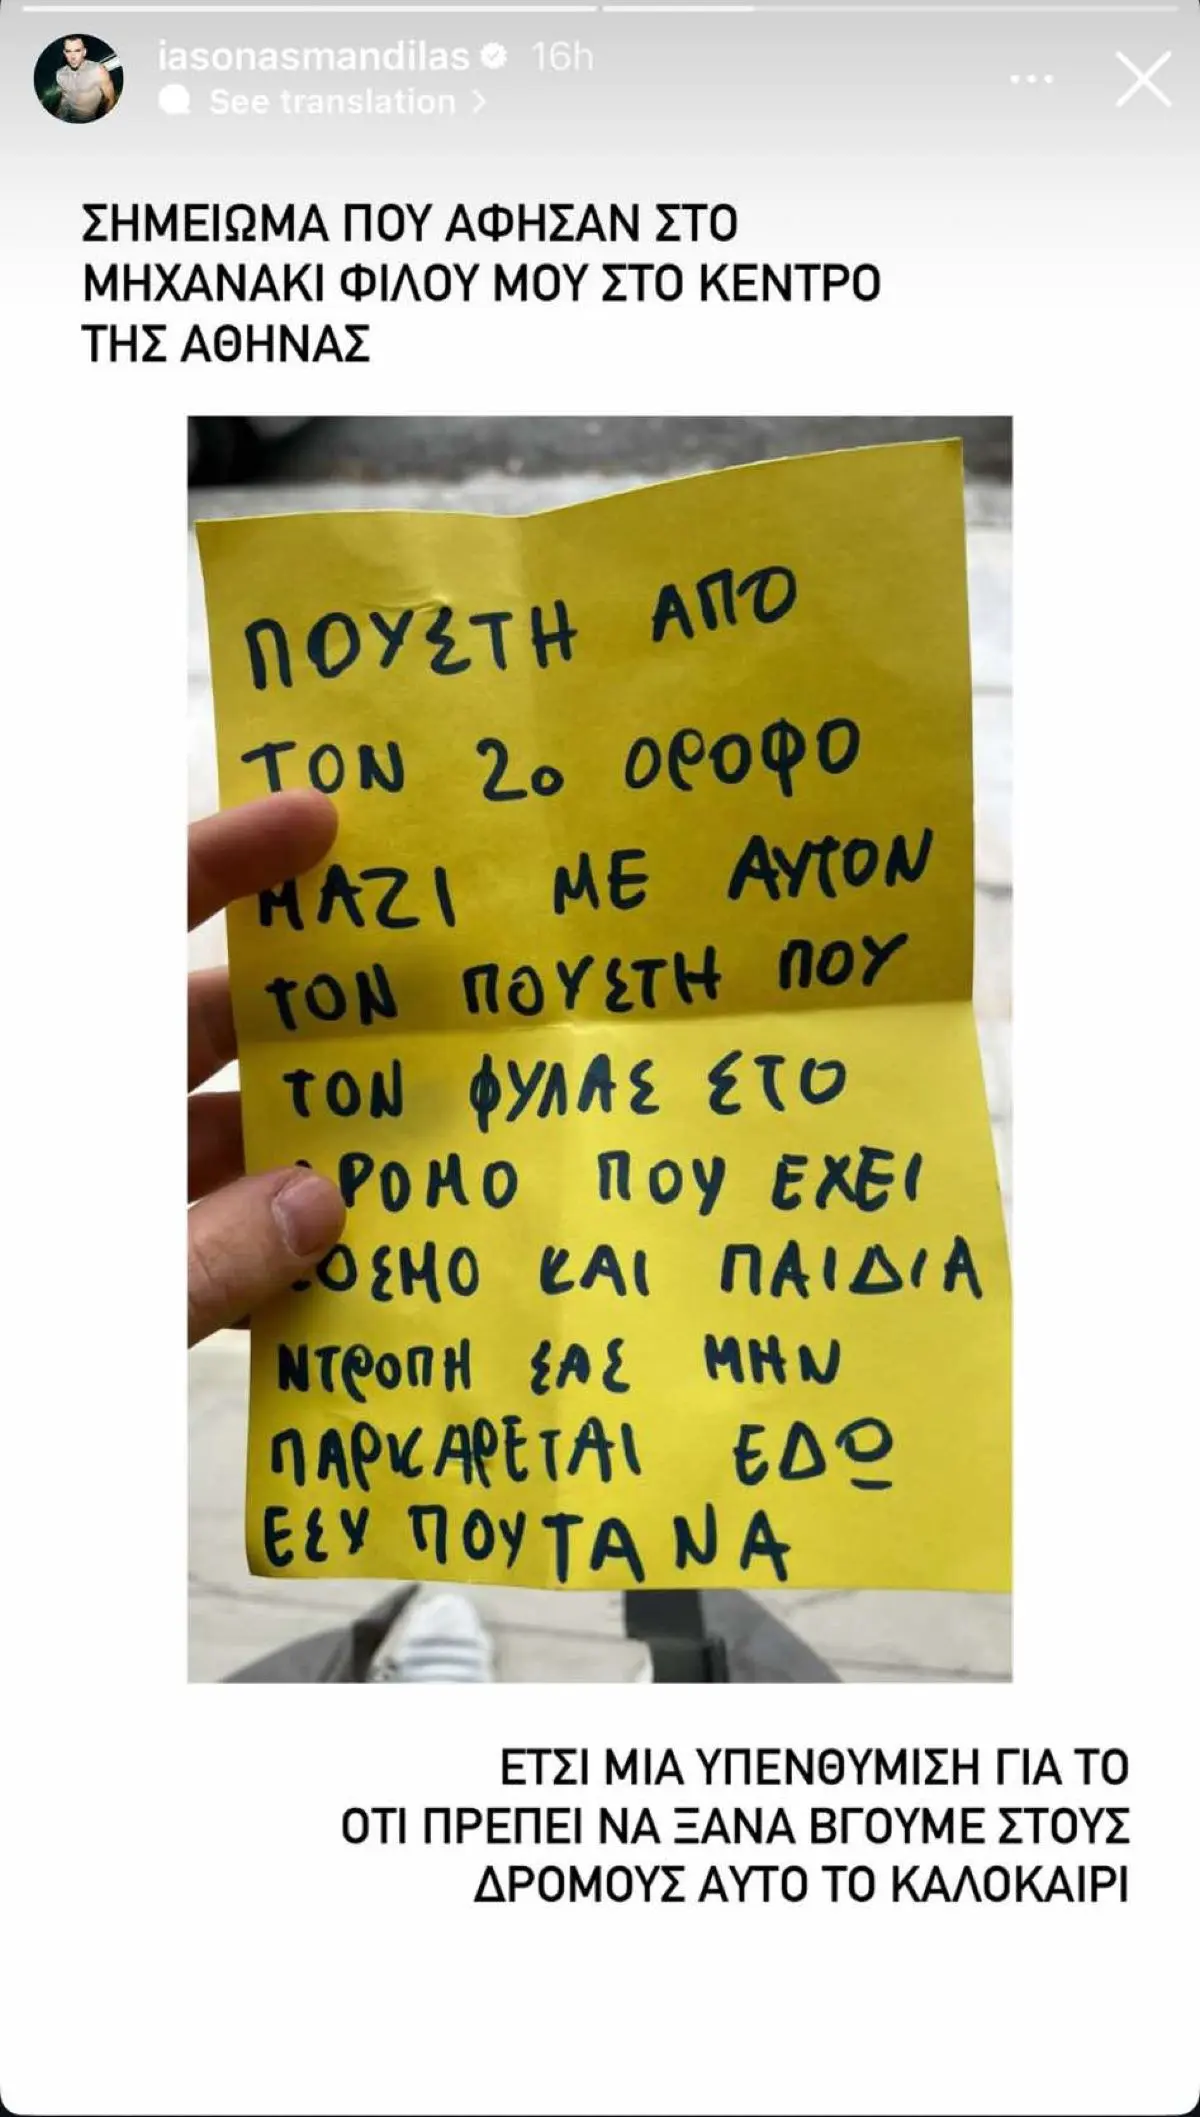 iasonasmandilas 16h
See translation >
ΣΗΜΕΙΩΜΑ ΠΟΥ ΑΦΗΣΑΝ ΣΤΟ
ΜΗΧΑΝΑΚΙ ΦΙΛΟΥ ΜΟΥ ΣΤΟ ΚΕΝΤΡΟ
ΤΗΣ ΑΘΗΝΑΣ
ΠΟΥΣΤΗ ΑΠΟ
ΤΟΝ 2ο ΟΡΟΦΟ
ΜΑΖΙ ΜΕ ΑΥΤΟΝ
ΤΟΝ ΠΟΥΣΤΗ ΠΟΥ
ΤΟΝ ΦΥΛΑΣ ΣΤΟ
ΔΡΟΜΟ ΠΟΥ ΕΧΕΙ
ΚΟΣΜΟ ΚΑΙ ΠΑΙΔΙΑ
ΝΤΡΟΠΗ ΣΑΣ ΜΗΝ
ΠΑΡΚΑΡΕΤΑΙ ΕΔΩ
ΕΣΥ ΠΟΥΤΑΝΑ
ΕΤΣΙ ΜΙΑ ΥΠΕΝΘΥΜΙΣΗ ΓΙΑ ΤΟ
ΟΤΙ ΠΡΕΠΕΙ ΝΑ ΞΑΝΑ ΒΓΟΥΜΕ ΣΤΟΥΣ
ΔΡΟΜΟΥΣ ΑΥΤΟ ΤΟ ΚΑΛΟΚΑΙΡΙ